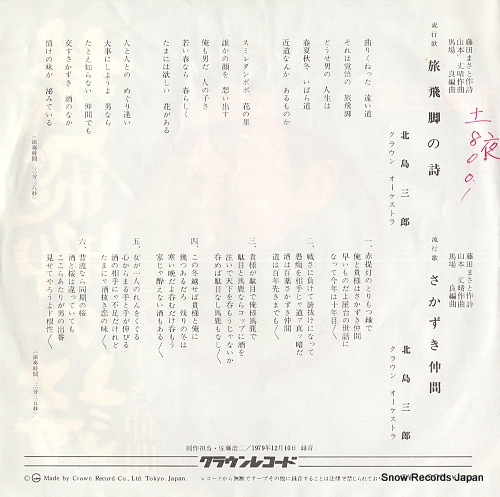 藤田まさと作詩
山本丈晴作曲
馬場良編曲
流行歌
旅飛脚の詩
北島三郎
クラウン オーケストラ
曲りくねった 遠い道
それは覚悟の 旅飛脚
どうせ男の 人生は
春夏秋冬 いばら道
近道なんか あるものか
スミレタンポポ 花の里
誰かの顔を 想い出す
俺も男だ 人の子さ
若い春なら 春らしく
たまには欲しい 花がある
人と人との めぐり逢い
大事にしようよ 男なら
たとえ知らない 仲間でも
交すさかずき 酒のなか
情けの味が 泌みている
(演奏時間 三分二八秒)
土夜
800.1
藤田まさと作詩
山本丈晴作曲
馬場良編曲
流行歌
さかずき仲間
北島三郎
クラウン オーケストラ
一、赤提灯のとりもつ縁で
俺と貴様はさかずき仲間
早いものだよ屋台の世話に
なって今年は十年目〱
二、戦さに負けて腑抜けになって
愚痴を相手じゃ道ァ真ッ暗だ
酒は百薬さかずき仲間
道は百年先きまでも〱
三、貴様が駄目で俺様馬鹿で
駄目と馬鹿ならコップに酒を
注いで天下を呑もうじゃないか
呑めば駄目なし馬鹿もなし〱
四、この冬越せば貴様と俺に
幾つあるかよ残りの冬は
寒い晩だよ呑むだけ呑もう
家じゃ酔えない酒もある〱
五、女が一人のれんをくぐる
心からまる手と手が伸びる
酒の相手に不足だけれど
たまにゃ酒抜き恋の味〱
六、昔流なら同期の桜
酒と桜は違っていても
ここらあたりが男の出番
見せてやろうよド根性〱
(演奏時間 三分三五秒)
制作担当・佐藤浩二/1979年12月10日 録音
クラウンレコード
Made by Crown Record Co., Ltd. Tokyo. Japan.
レコードから無断でテープその他に録音することは法律で禁じられており
Snow Records Japan